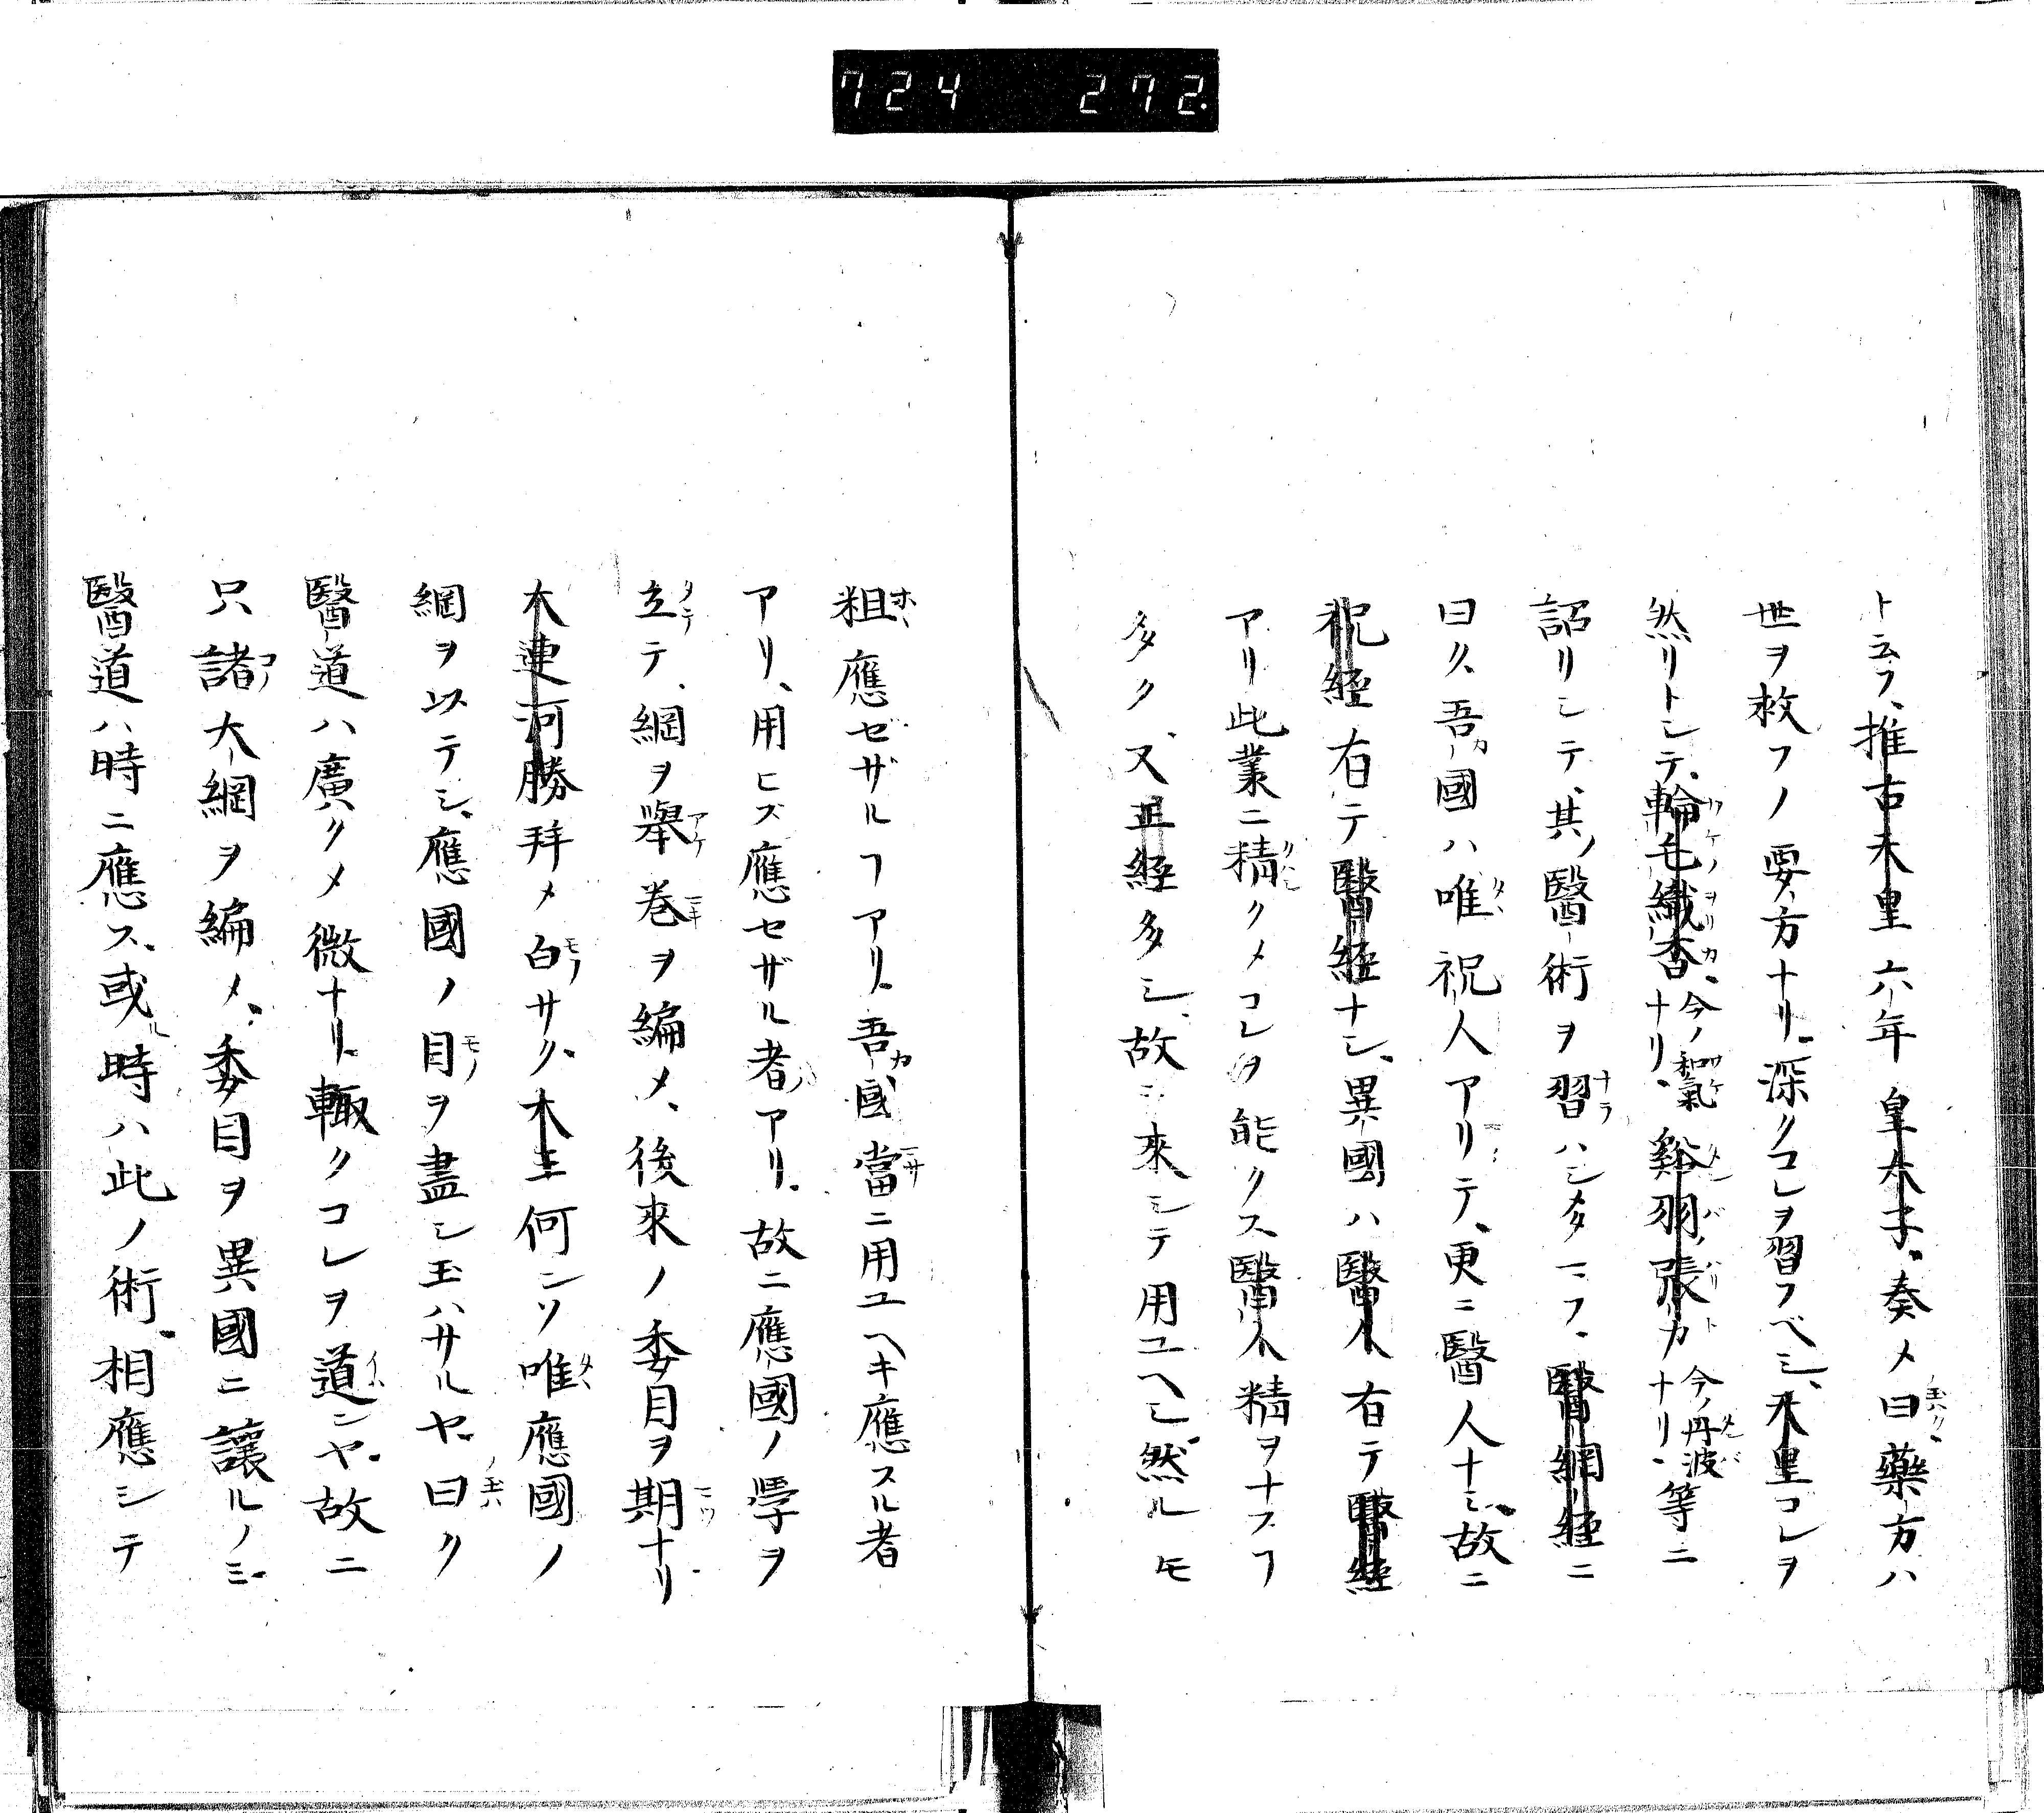 724 272.
ト云フ、推古天皇六年皇太子、奏メ曰藥方ハ
世ヲ救フノ要方ナリ、深クコレヲ習フベシ、天皇コレヲ
然リトシテ、輪毛織杏ナリ、今ノ和氣谿羽張カナリ、今ノ丹波等ニ
詔リシテ、其ノ醫術ヲ習ハシメタマフ、醫綱経ニ
曰ク、吾カ國ハ唯祝人アリテ、更ニ醫人ナシ、故ニ
祝経有テ醫経ナシ、異國ハ醫人有テ醫経
アリ此業ニ精クメコレヲ能クス、醫人精ヲナスヿ
多ク、又正経多シ、故ニ來シテ用ユヘシ、然ルモ
粗應ゼザルヿアリ、吾カ國當ニ用ユヘキ應スル者
アリ、用ヒズ應セザル者ノアリ、故ニ應國ノ學ヲ
立テ、綱ヲ舉巻ヲ編メ、後來ノ委目ヲ期ナリ
大連河勝拜メ白サク、木主何ンソ唯應國ノ
綱ヲ以テシ、應國ノ目ヲ盡シ玉ハサルヤ、曰ク
醫道ハ廣クメ微ナリ、輙クコレヲ道ンヤ、故ニ
只諸大綱ヲ編メ、委目ヲ異國ニ讓ルノミ
醫道ハ時ニ應ス、或ル時ハ此ノ術、相應シテ